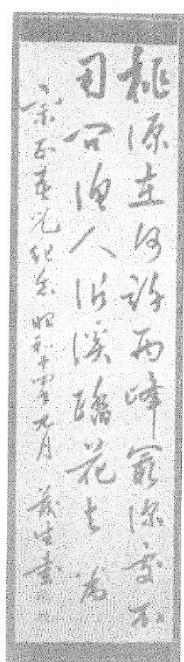 桃源在何許西峰最深處不
用問漁人沿溪踏花去 為
正 兄紀念 昭和十四年九月 生書